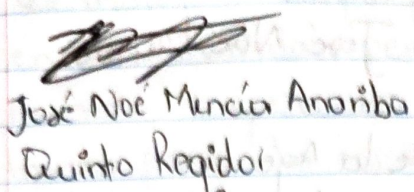 José Noé Muncía Anariba
Quinto Regidor